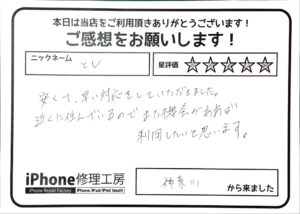 本日は当店をご利用頂きありがとうございます!
ご感想をお願いします!
ニックネーム
星評価 ☆☆☆☆☆
安くて、早い対応をしていただきました。
近くに住んでいるのでまた機会があれば
利用したいと思います。
iPhone修理工房
iPhone Repair Factory
iPhone/iPad/iPod touch
神奈川 から来ました